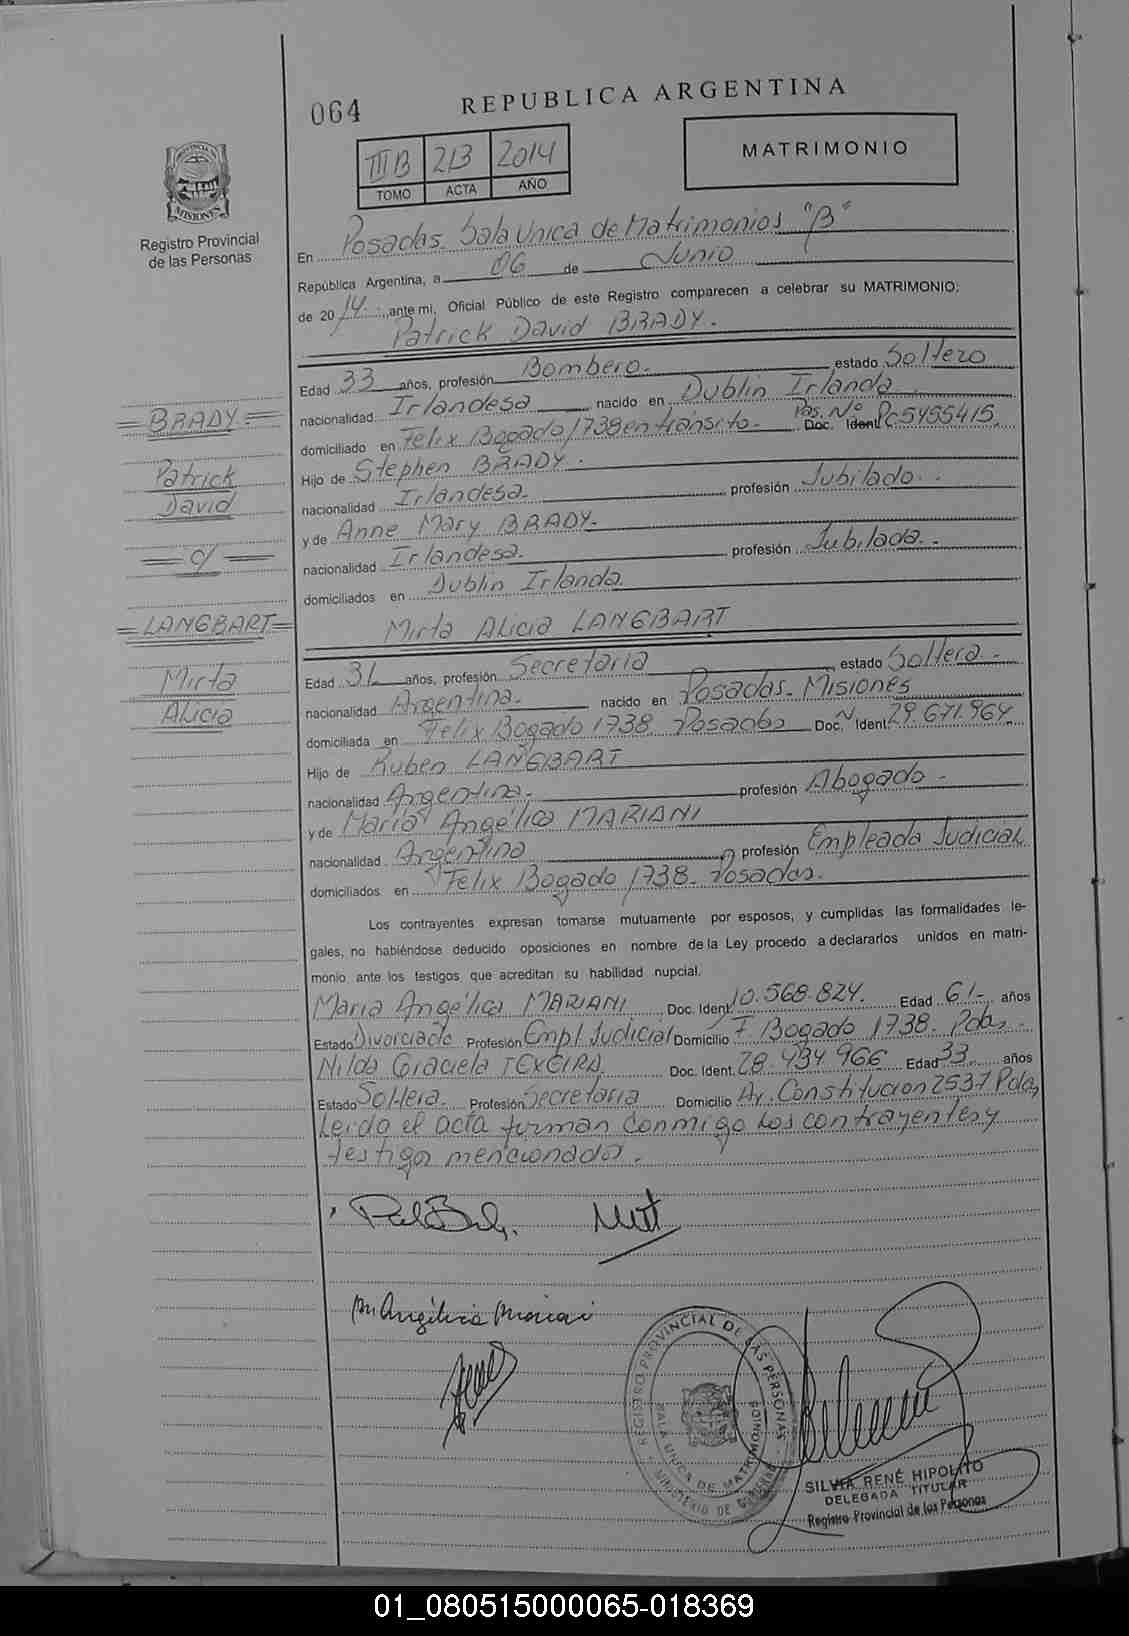 064
REPUBLICA ARGENTINA
III B 213 2014
TOMO ACTA AÑO
MATRIMONIO
PROVINCIA DE MISIONES
Registro Provincial
de las Personas
En Posadas Sala Unica de Matrimonios "B"
República Argentina, a 06 de Junio
de 2014, ante mi, Oficial Público de este Registro comparecen a celebrar su MATRIMONIO:
Patrick David BRADY.
Edad 33 años, profesión Bombero. estado Soltero
nacionalidad Irlandesa nacido en Dublin Irlanda
domiciliado en Felix Bogado 1738 en transito. Pas. Nº Doc. Ident. PC5455415.
Hijo de Stephen BRADY.
nacionalidad Irlandesa. profesión Jubilado.
y de Anne Mary BRADY.
nacionalidad Irlandesa. profesión Jubilada.
domiciliados en Dublin Irlanda.
Mirta Alicia LANGBART
Edad 31 años, profesión Secretaria estado Soltera.
nacionalidad Argentina. nacido en Posadas. Misiones
domiciliada en Felix Bogado 1738. Posadas Doc. Ident. Nº 29.671.964.
Hijo de Ruben LANGBART
nacionalidad Argentina. profesión Abogado.
y de María Angélica MARIANI
nacionalidad Argentina profesión Empleada Judicial
domiciliados en Felix Bogado 1738. Posadas.
= BRADY =
Patrick
David
= c/ =
= LANGBART =
Mirta
Alicia
Los contrayentes expresan tomarse mutuamente por esposos, y cumplidas las formalidades le-
gales, no habiéndose deducido oposiciones en nombre de la Ley procedo a declararlos unidos en matri-
monio ante los testigos que acreditan su habilidad nupcial.
María Angélica MARIANI Doc. Ident. 10.568.824. Edad 61. años
Estado Divorciada Profesión Empl. Judicial Domicilio F. Bogado 1738. Pdas.
Nilda Graciela TEXEIRA Doc. Ident. 28.434.966 Edad 33 años
Estado Soltera. Profesión Secretaria Domicilio Av. Constitucion 2537 Pdas
Leido el acta firman conmigo los contrayentes y
testigos mencionados.
M. Angélica Mariani
REGISTRO PROVINCIAL DE LAS PERSONAS
SALA UNICA DE MATRIMONIOS
MINISTERIO DE GOBIERNO
SILVIA RENÉ HIPOLITO
DELEGADA TITULAR
Registro Provincial de las Personas
01_080515000065-018369